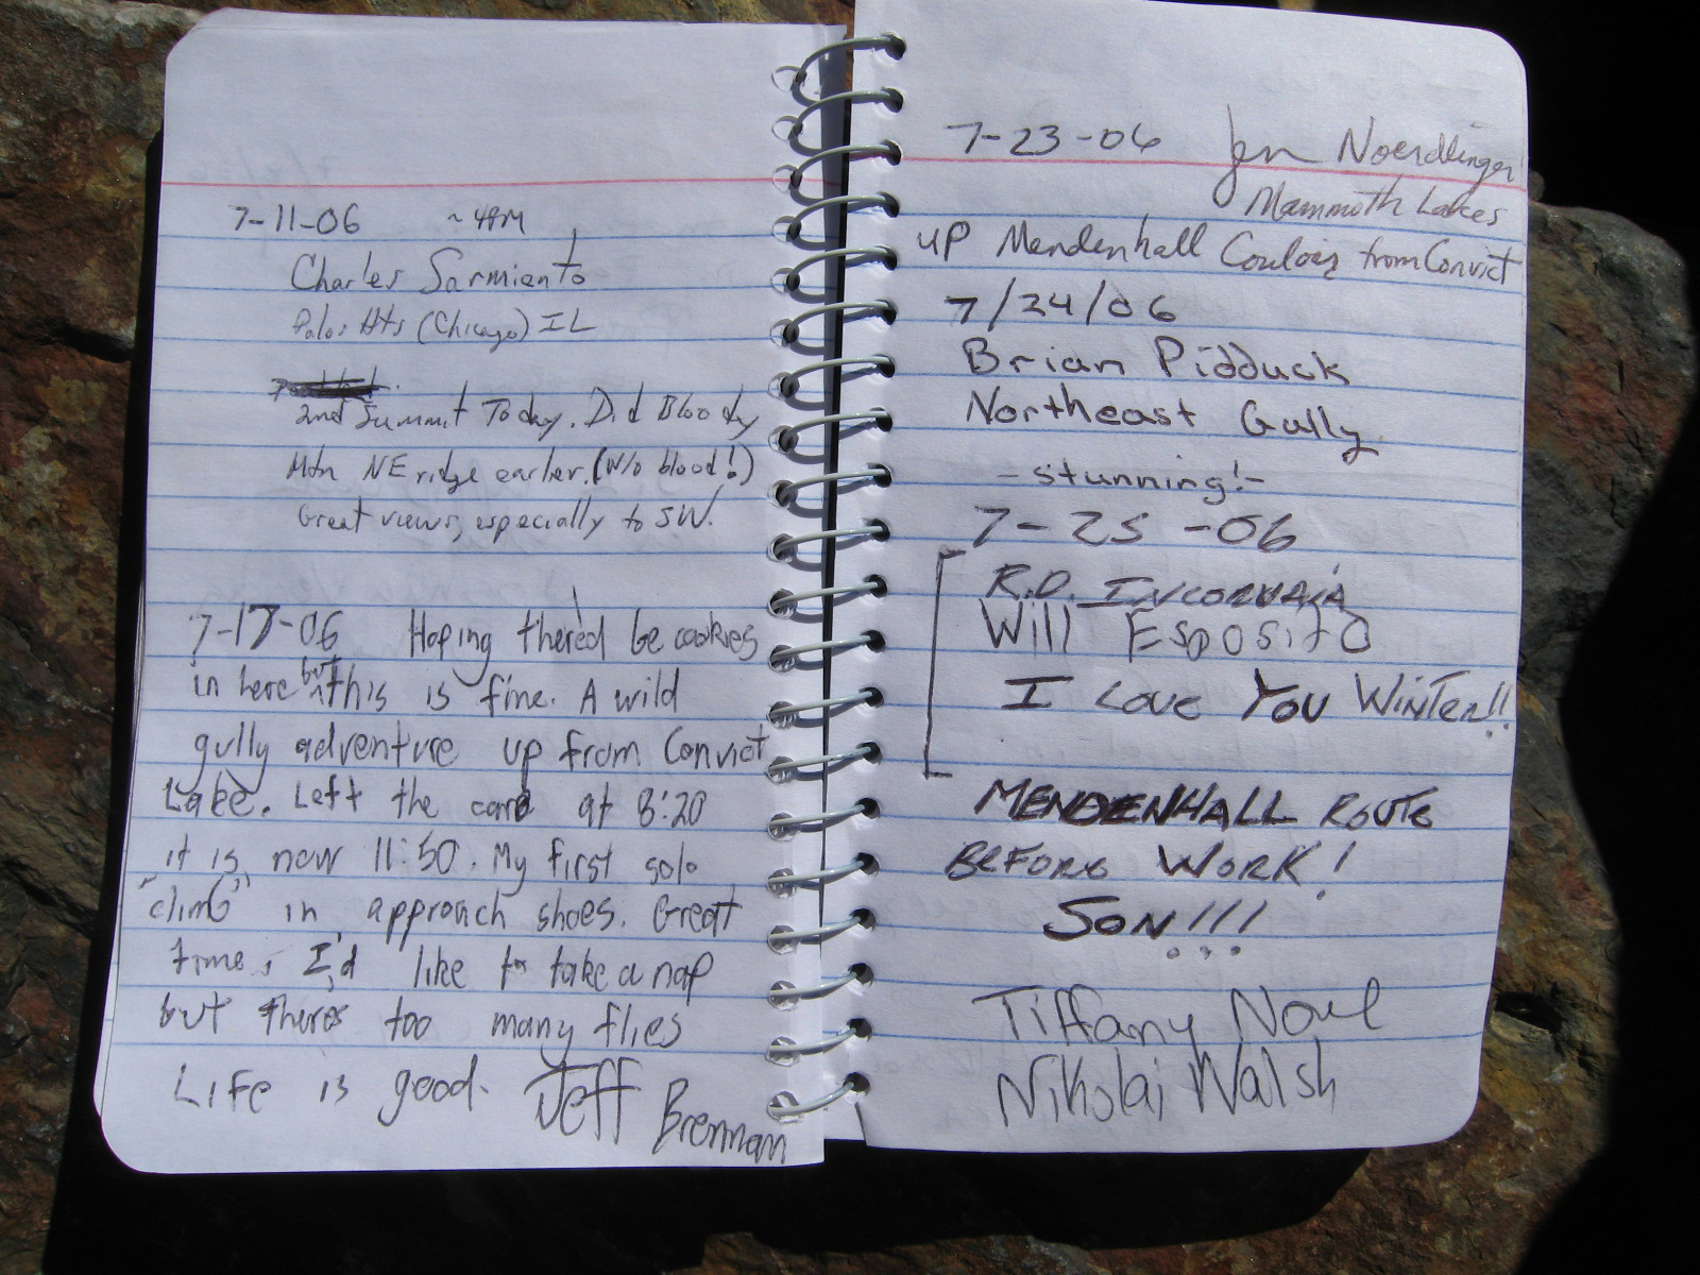 7-11-06 ~4PM
Charles Sarmiento
Palos Hts (Chicago) IL
2nd Summit Today. Did Bloody
Mtn NE ridge earlier. (w/o blood!)
Great views, especially to SW.
7-17-06 Hoping there'd be cookies
in here but this is fine. A wild
gully adventure up from Convict
Lake. Left the car at 8:20
it is now 11:50. My first solo
"climb" in approach shoes. Great
time, I'd like to take a nap
but theres too many flies
Life is good. Jeff Brennan
7-23-06 Jen Noerdlinger
Mammoth Lakes
up Mendenhall Couloir from Convict
7/24/06
Brian Pidduck
Northeast Gully
-stunning!-
7-25-06
R.D. INCORVAIA
Will Esposito
I LOVE YOU WINTER!!
MENDENHALL ROUTE
BEFORE WORK!
SON!!!
Tiffany
Nikolai Walsh